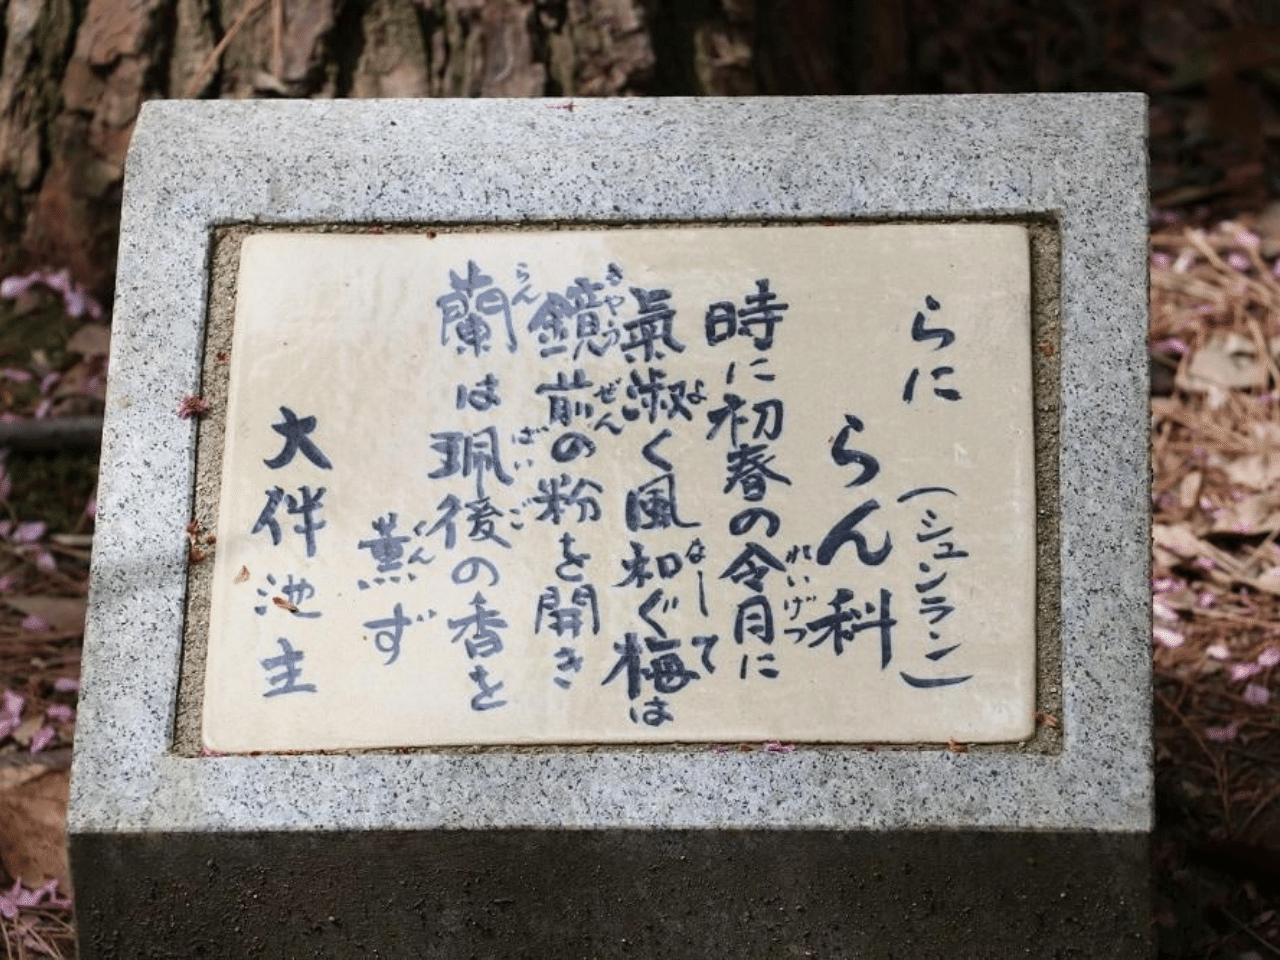 らに（シュンラン）
らん科
時に初春の令月に
氣淑く風和ぐ梅は
鏡前の粉を開き
蘭は珮後の香を
薫ず
大伴池主
れいげつ
よ
なして
きやうぜん
らん
ばいご
くん